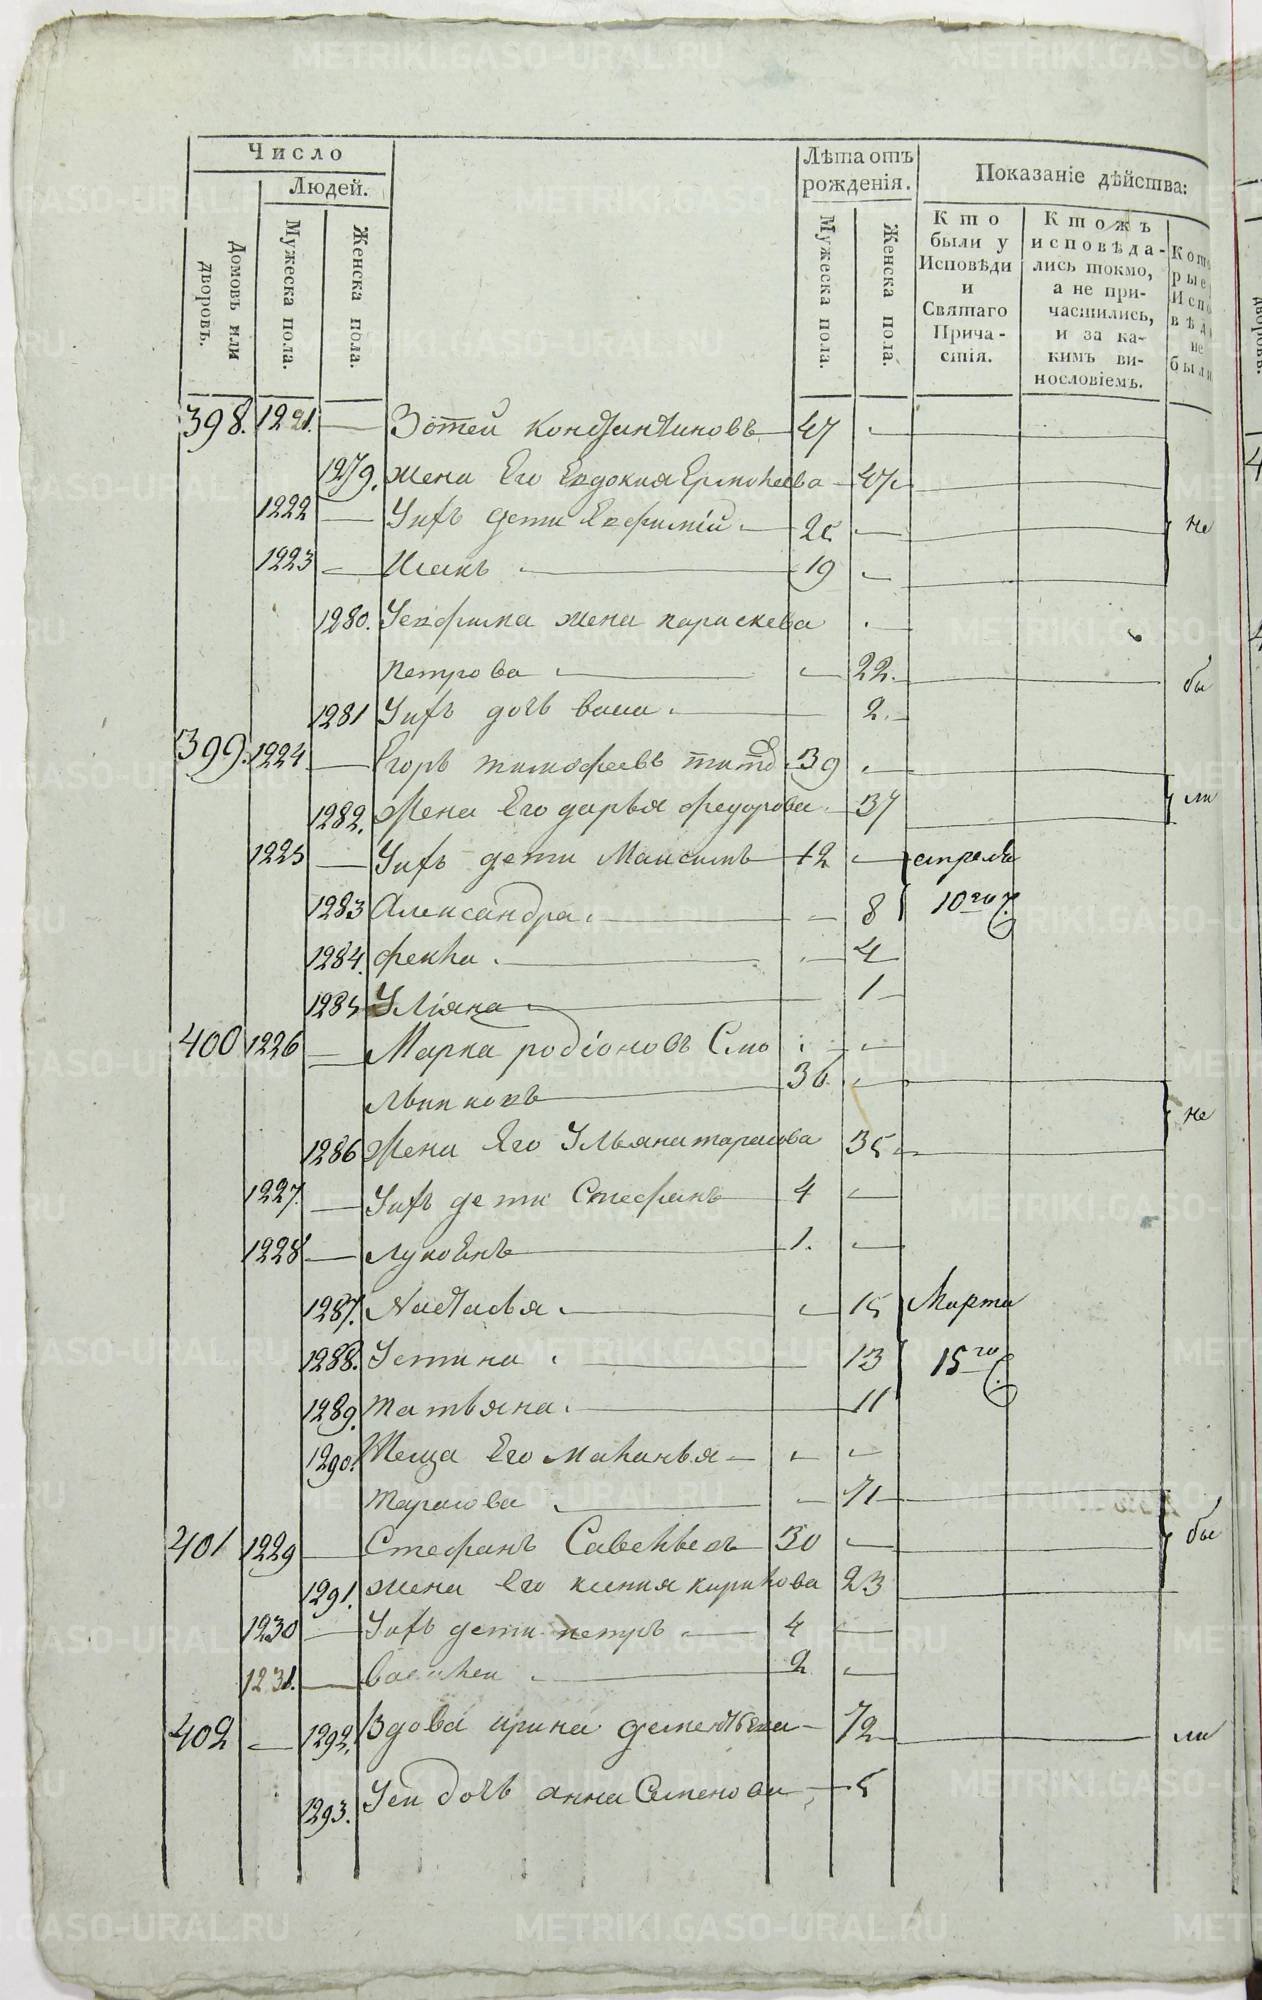 Число
Людей.
Домовъ или дворовъ.
Мужеска пола.
Женска пола.
Лѣта отъ рожденія.
Мужеска пола.
Женска пола.
Показаніе дѣйства:
Кто были у Исповѣди и Святаго Прича-стія.
Ктожъ исповѣда-лись токмо, а не при-частились, и за ка-кимъ ви-нословіемъ.
398. 1221. — Зотей Констинтиновъ 47
1279. жена Его Евдокия 47
1222 — Уихъ дети Евфимій 25 не
1223 — Исакъ 19
1280. жена параскева
петрова 22. бы
1281 Уихъ дочь 2.
399. 1224 — Егоръ тимофеевъ 39
1282. Жена Его дарья федорова 37 ли
1225 — Уихъ дети Максимъ 12 апреля
1283 Александра 8 10го
1284. фекла 4
1285 Уліяна 1
400 1226 — Марка родіоновъ Смо
льниковъ 36 не
1286 Жена Его Ульяна тарасова 35
1227. — Уихъ дети Стефанъ 4
1228 — 1.
1287. Настасья 15 Марта
1288. Устина 13 15го
1289. татьяна 11
1290. Теща Его Маланья
тарасова 71
401 1229 — Стефанъ Савельевъ 30 бы
1291. жена Его ксения кирилова 23
1230 — Уихъ дети петръ 4
1231. — василеи 2
402 — 1292. Вдова ирина дементьева 72 ли
1293. Уеи дочь анна Семенова 5
METRIKI.GASO-URAL.RU